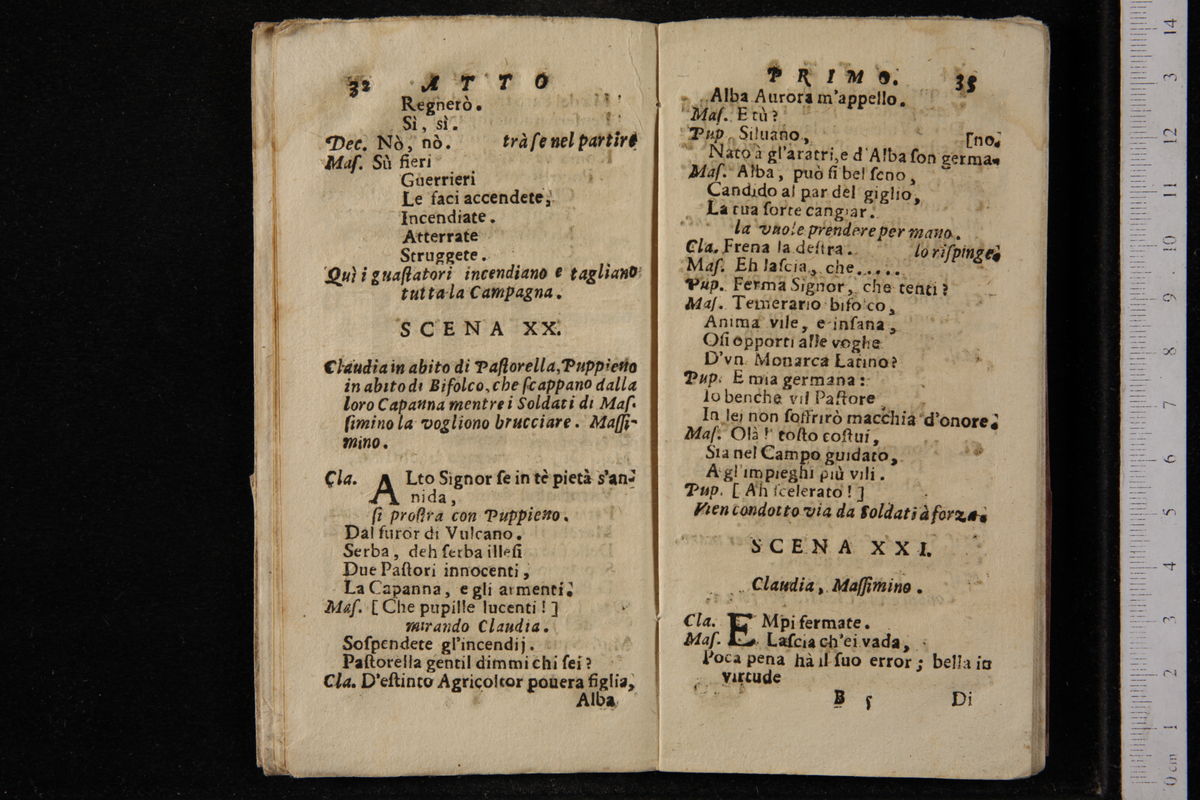 32 ATTO
Regnerò.
Sì, sì.
Dec. Nò, nò. trà se nel partire
Mas. Sù fieri
Guerrieri
Le faci accendete,
Incendiate.
Atterrate
Struggete.
Quì i guaſtatori incendiano e tagliano
tutta la Campagna.
SCENA XX.
Claudia in abito di Paſtorella, Puppieno
in abito di Bifolco, che ſcappano dalla
loro Capanna mentre i Soldati di Maſ-
ſimino la vogliono brucciare. Maſſi-
mino.
Cla. ALto Signor ſe in tè pietà s'an-
nida,
ſi proſtra con Puppieno.
Dal furor di Vulcano.
Serba, deh ſerba illeſi
Due Paſtori innocenti,
La Capanna, e gli armenti.
Maſ. [Che pupille lucenti!]
mirando Claudia.
Soſpendete gl'incendij.
Paſtorella gentil dimmi chi ſei?
Cla. D'eſtinto Agricoltor pouera figlia,
Alba
PRIMO. 35
Alba Aurora m'appello.
Maſ. E tù?
Pup Siluano, [no.
Nato à gl'aratri, e d'Alba ſon germa-
Maſ. Alba, può ſi bel ſeno,
Candido al par del giglio,
La tua ſorte cangiar.
la vuole prendere per mano.
Cla. Frena la deſtra. lo riſpinge.
Maſ. Eh laſcia, che.....
Pup. Ferma Signor, che tenti?
Maſ. Temerario bifolco,
Anima vile, e inſana,
Oſi opporti alle voghe
D'vn Monarca Latino?
Pup. E mia germana:
Io benche vil Paſtore
In lei non ſoffrirò macchia d'onore.
Maſ. Olà! toſto coſtui,
Sia nel Campo guidato,
A gl'impieghi più vili.
Pup. [Ah ſcelerato!]
Vien condotto via da Soldati à forza.
SCENA XXI.
Claudia, Maſſimino.
Cla. EMpi fermate.
Maſ. Laſcia ch'ei vada,
Poca pena hà il ſuo error; bella in
virtude
B 5 Di
0 cm 1 2 3 4 5 6 7 8 9 10 11 12 3 14